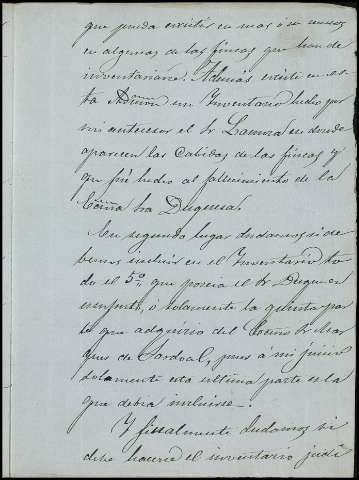 que pueda existir en mas ó en menos
en algunas de las fincas que han de
inventariarse. Además existe en es-
ta Admon. un Inventario hecho por
mi antecesor el Sr Lamora en donde
aparecen las Cabidas de las fincas y
que fué hecho al fallecimiento de la
Excma Sra Duquesa.
En segundo lugar dudamos si de-
bemos incluir en el Inventario to-
do el 5º, que poseia el Sr Duque en
ó solamente la quinta par-
te que adquirio del Excmo Sr Mar-
ques de Sardoal, pues á mi juicio
solamente esta ultima parte es la
que debia incluirse.
Y finalmente dudamos si
debe hacerse el inventario judi